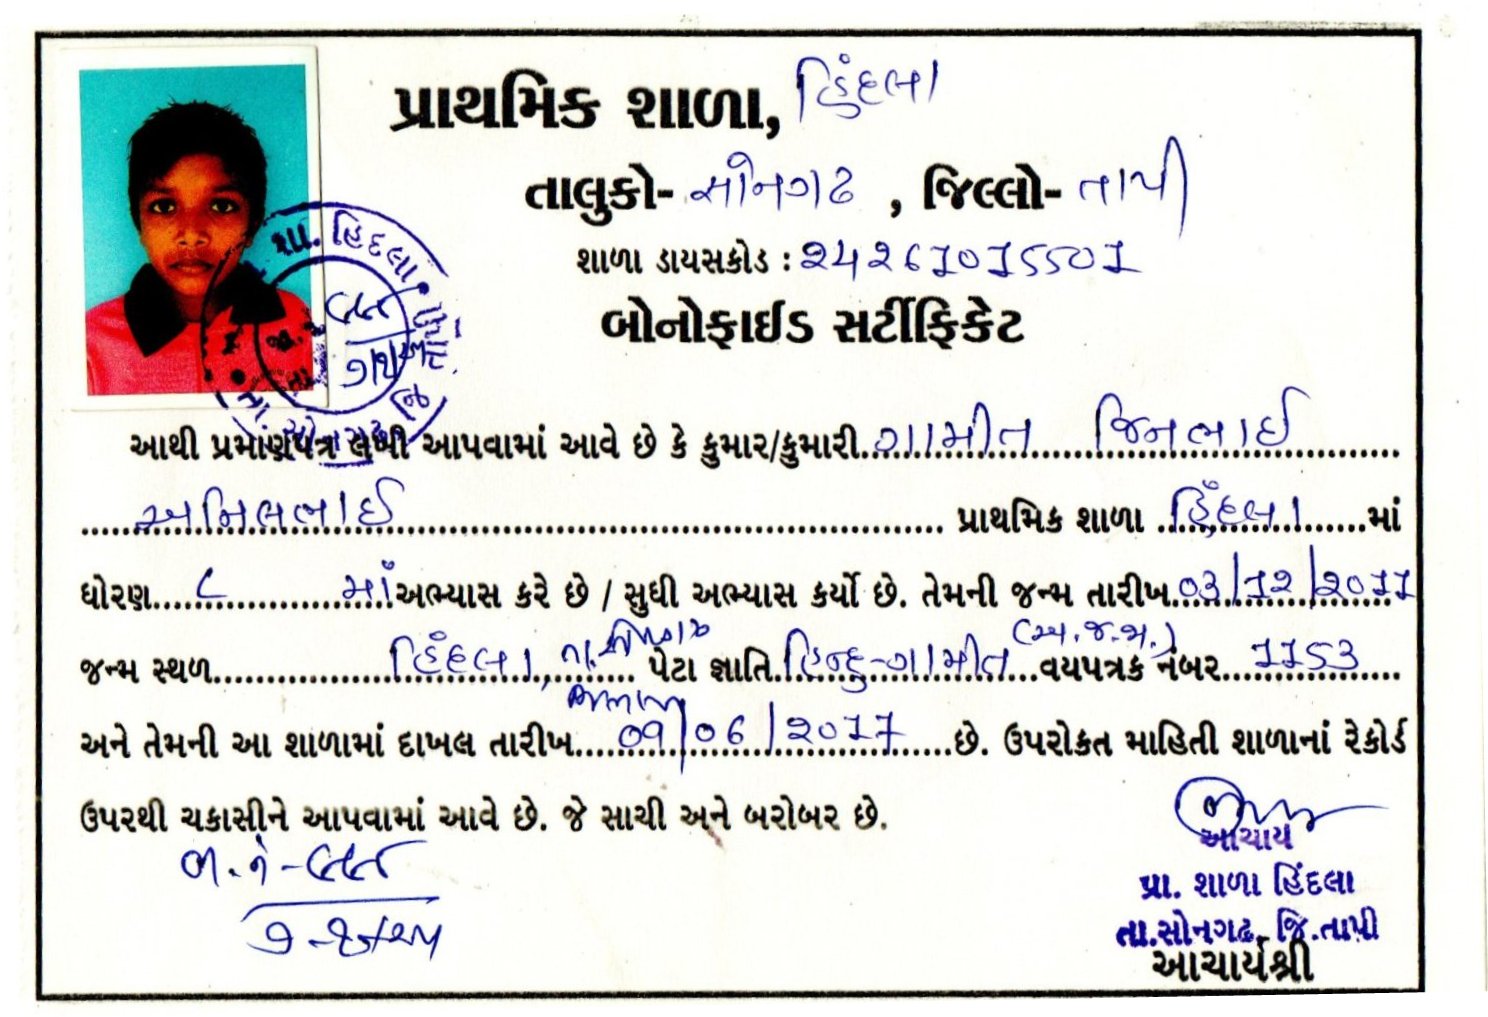 પ્રાથમિક શાળા, હિંદલા
તાલુકો- સોનગઢ , જિલ્લો- તાપી
શાળા ડાયસકોડ : 24261015501
બોનોફાઈડ સર્ટીફિકેટ
શા. હિંદલા
તા. સોનગઢ જિ. તાપી
આથી પ્રમાણપત્ર લખી આપવામાં આવે છે કે કુમાર/કુમારી ગામીત જિનલભાઈ
અનિલભાઈ પ્રાથમિક શાળા હિંદલા માં
ધોરણ ૮ માં અભ્યાસ કરે છે / સુધી અભ્યાસ કર્યો છે. તેમની જન્મ તારીખ 03/12/2011
જન્મ સ્થળ હિંદલા, તા. પેટા જ્ઞાતિ હિન્દુ-ગામીત (અ.જ.જા.) વયપત્રક નંબર 1153
અને તેમની આ શાળામાં દાખલ તારીખ 09/06/2017 છે. ઉપરોક્ત માહિતી શાળાનાં રેકોર્ડ
ઉપરથી ચકાસીને આપવામાં આવે છે. જે સાચી અને બરોબર છે.
આચાર્ય
પ્રા. શાળા હિંદલા
તા.સોનગઢ જિ.તાપી
આચાર્યશ્રી